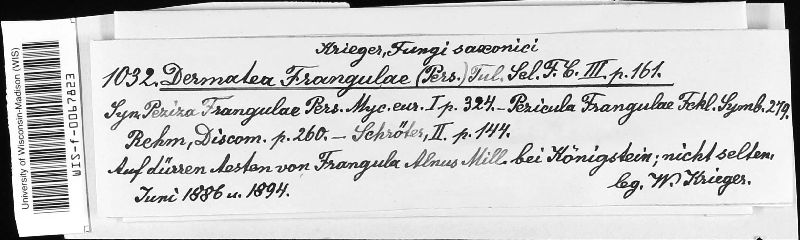 University of Wisconsin-Madison (WIS)
WIS-f-0007823
Krieger, Fungi saxonici
1032. Dermatea Frangulae (Pers.) Tul. Sel. F. C. III. p. 161.
Syn. Peziza Frangulae Pers. Myc. eur. I p. 324. – Pezicula Frangulae Fckl. Symb. 279.
Rehm, Discom. p. 260. – Schröter, II. p. 144.
Auf dürren Aesten von Frangula Alnus Mill bei Königstein; nicht selten.
Juni 1886 u. 1894. leg. W. Krieger.